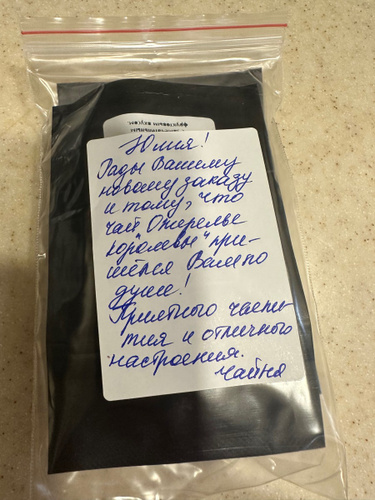 Юлия!
Рады Вашему
новому заказу
и тому, что
чай Ожерелье
королевы" при-
шёлся Вам по
душе!
Приятного чаепи
тия и отличного
настроения.
Чайна